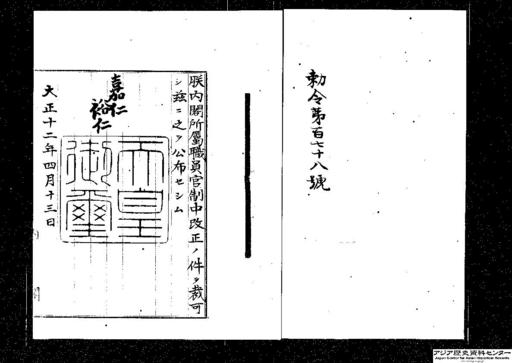 勅令第百七十八號
朕内閣所屬職員官制中改正ノ件ヲ裁可
シ茲ニ之ヲ公布セシム
嘉仁
裕仁
天皇御璽
大正十二年四月十三日
アジア歴史資料センター
Japan Center for Asian Historical Records